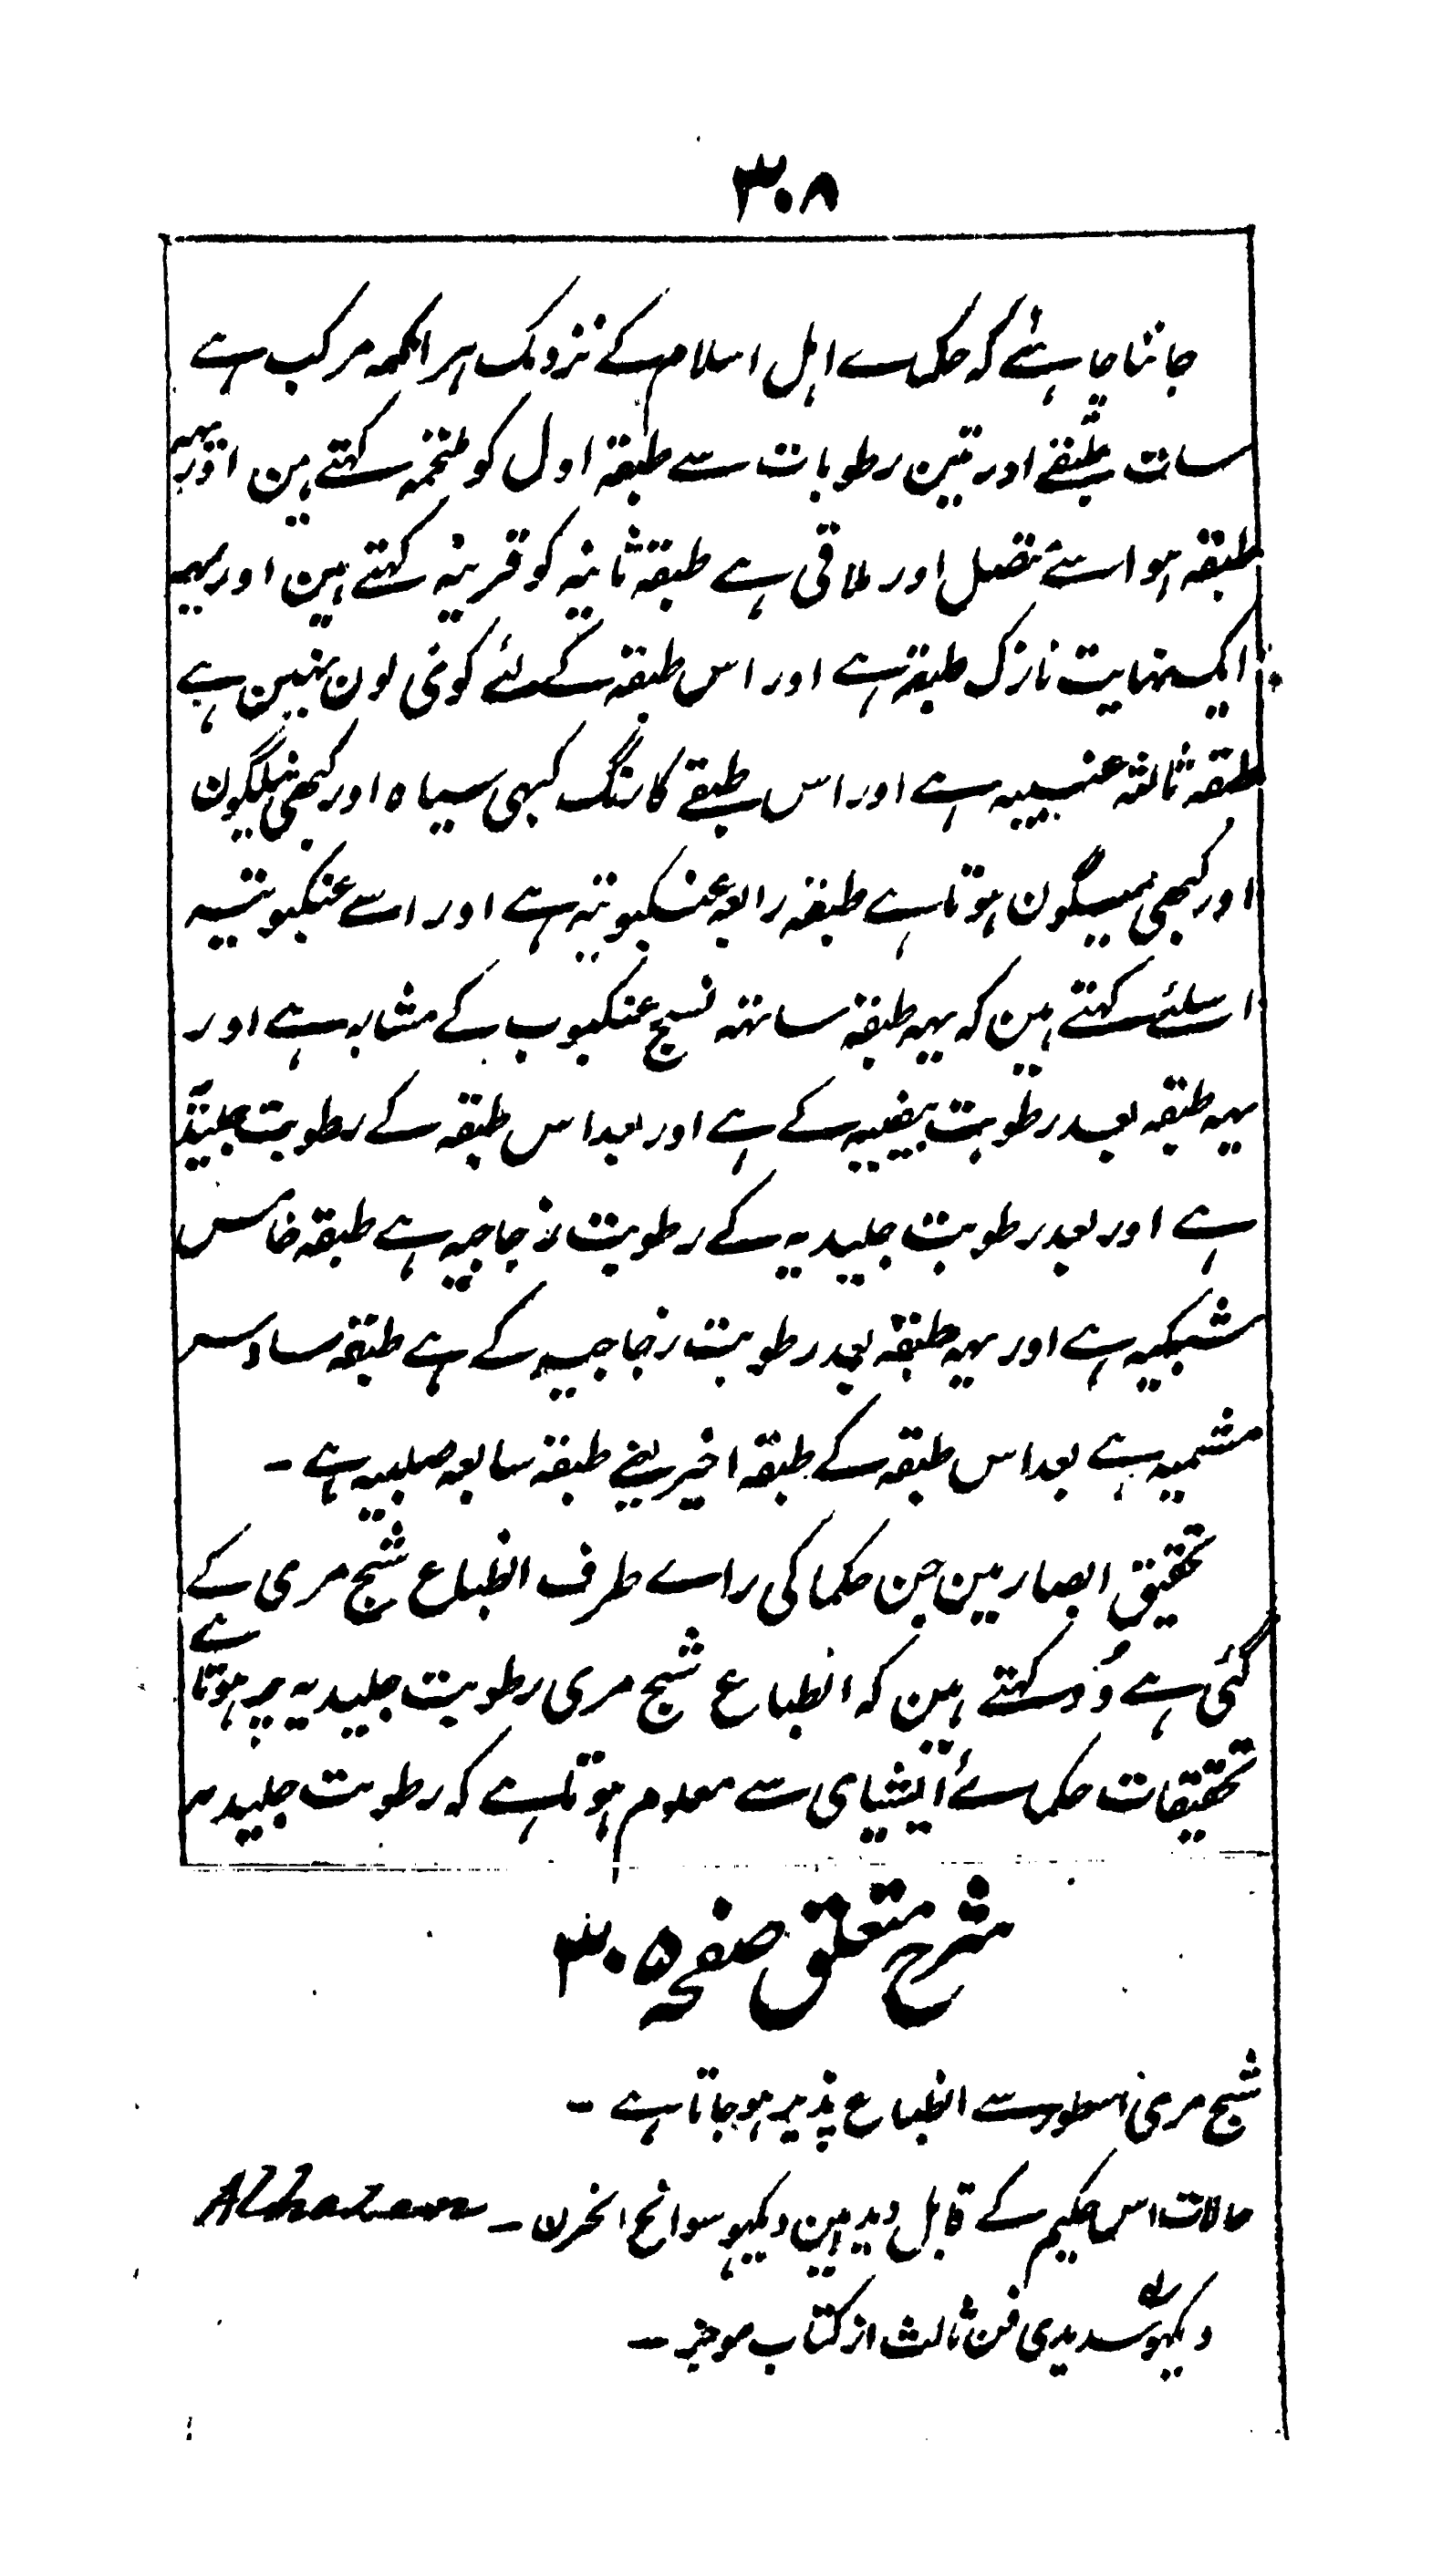 ۳۰۸
جاننا چاہئے کہ حکماے اہل اسلام کے نزدیک ہر انکھہ مرکب ہے
سات طبقے اور تین رطوبات سے طبقۂ اول کو ملتحمہ کہتے ہین اور یہہ
طبقہ ہوا سے متصل اور ملاقی ہے طبقہ ثانیہ کو قرینہ کہتے ہین اور یہہ
ایک نہایت نازک طبقہ ہے اور اس طبقہ کے لئے کوئی لون نہین ہے
طبقہ ثالثہ عنبیہ ہے اور اس طبقے کا رنگ کبہی سیاہ اور کبھی نیلگون
اور کبھی میگون ہوتا ہے طبقہ رابعہ عنکبوتیہ ہے اور اسے عنکبوتیہ
اسلئے کہتے ہین کہ یہہ طبقہ ساتہہ نسج عنکبوب کے مشابہ ہے اور
یہہ طبقہ بعد رطوبت بیضیہ کے ہے اور بعد اس طبقہ کے رطوبت جلیدیہ
ہے اور بعد رطوبت جلیدیہ کے رطوبت زجاجیہ ہے طبقہ خامس
شبکیہ ہے اور یہہ طبقہ بعد رطوبت زجاجیہ کے ہے طبقہ سادس
مشمیہ ہے بعد اس طبقہ کے طبقہ اخیر یعنے طبقہ سابعہ صلبیہ ہے -
تحقیق ابصار مین جن حکما کی راے طرف انطباع شبح مری کے
گئی ہے وُہ کہتے ہین کہ انطباع شبح مری رطوبت جلیدیہ پر ہوتا ہے
تحقیقات حکماے ایشیای سے معلوم ہوتا ہے کہ رطوبت جلیدیہ
شرح متعلق صفحہ ۳۰۵
شبح مرئی اسطور سے انطباع پذیر ہو جاتا ہے -
حالات اس حکیم کے قابل دید ہین دیکہو سوانح الخزن - Alhazen
دیکہو سدیدی فن ثالث از کتاب موجز -